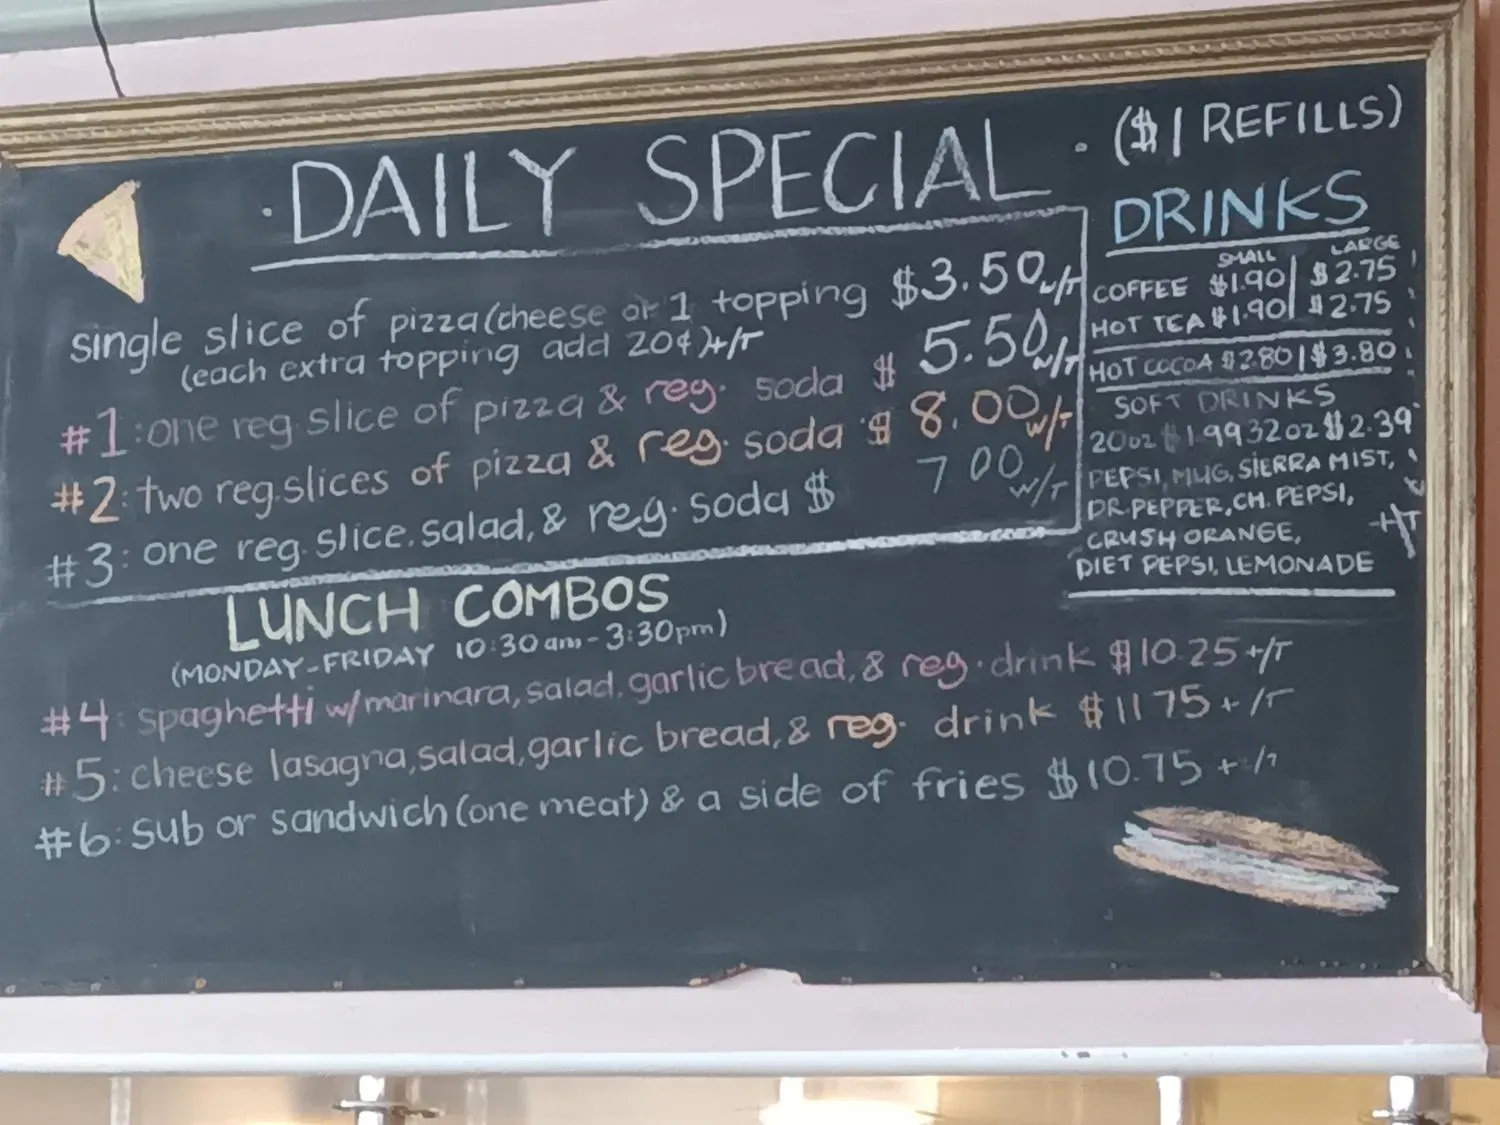 · DAILY SPECIAL ·
single slice of pizza (cheese or 1 topping $3.50 w/T
(each extra topping add 20¢) +/T
#1: one reg. slice of pizza & reg. soda $ 5.50 w/T
#2: two reg. slices of pizza & reg. soda $ 8.00 w/T
#3: one reg. slice, salad, & reg. soda $ 7 00 w/T
LUNCH COMBOS
(MONDAY-FRIDAY 10:30am-3:30pm)
#4: spaghetti w/marinara, salad, garlic bread, & reg. drink $10.25 +/T
#5: cheese lasagna, salad, garlic bread, & reg. drink $11 75 + /T
#6: sub or sandwich (one meat) & a side of fries $10.75 + /T
($1 REFILLS)
DRINKS
SMALL LARGE
COFFEE $1.90 | $2.75
HOT TEA $1.90 | $2.75
HOT COCOA $2.80 | $3.80
SOFT DRINKS
20oz $1.99 32oz $2.39
PEPSI, MUG, SIERRA MIST,
DR. PEPPER, CH. PEPSI,
CRUSH ORANGE,
+/T
DIET PEPSI, LEMONADE